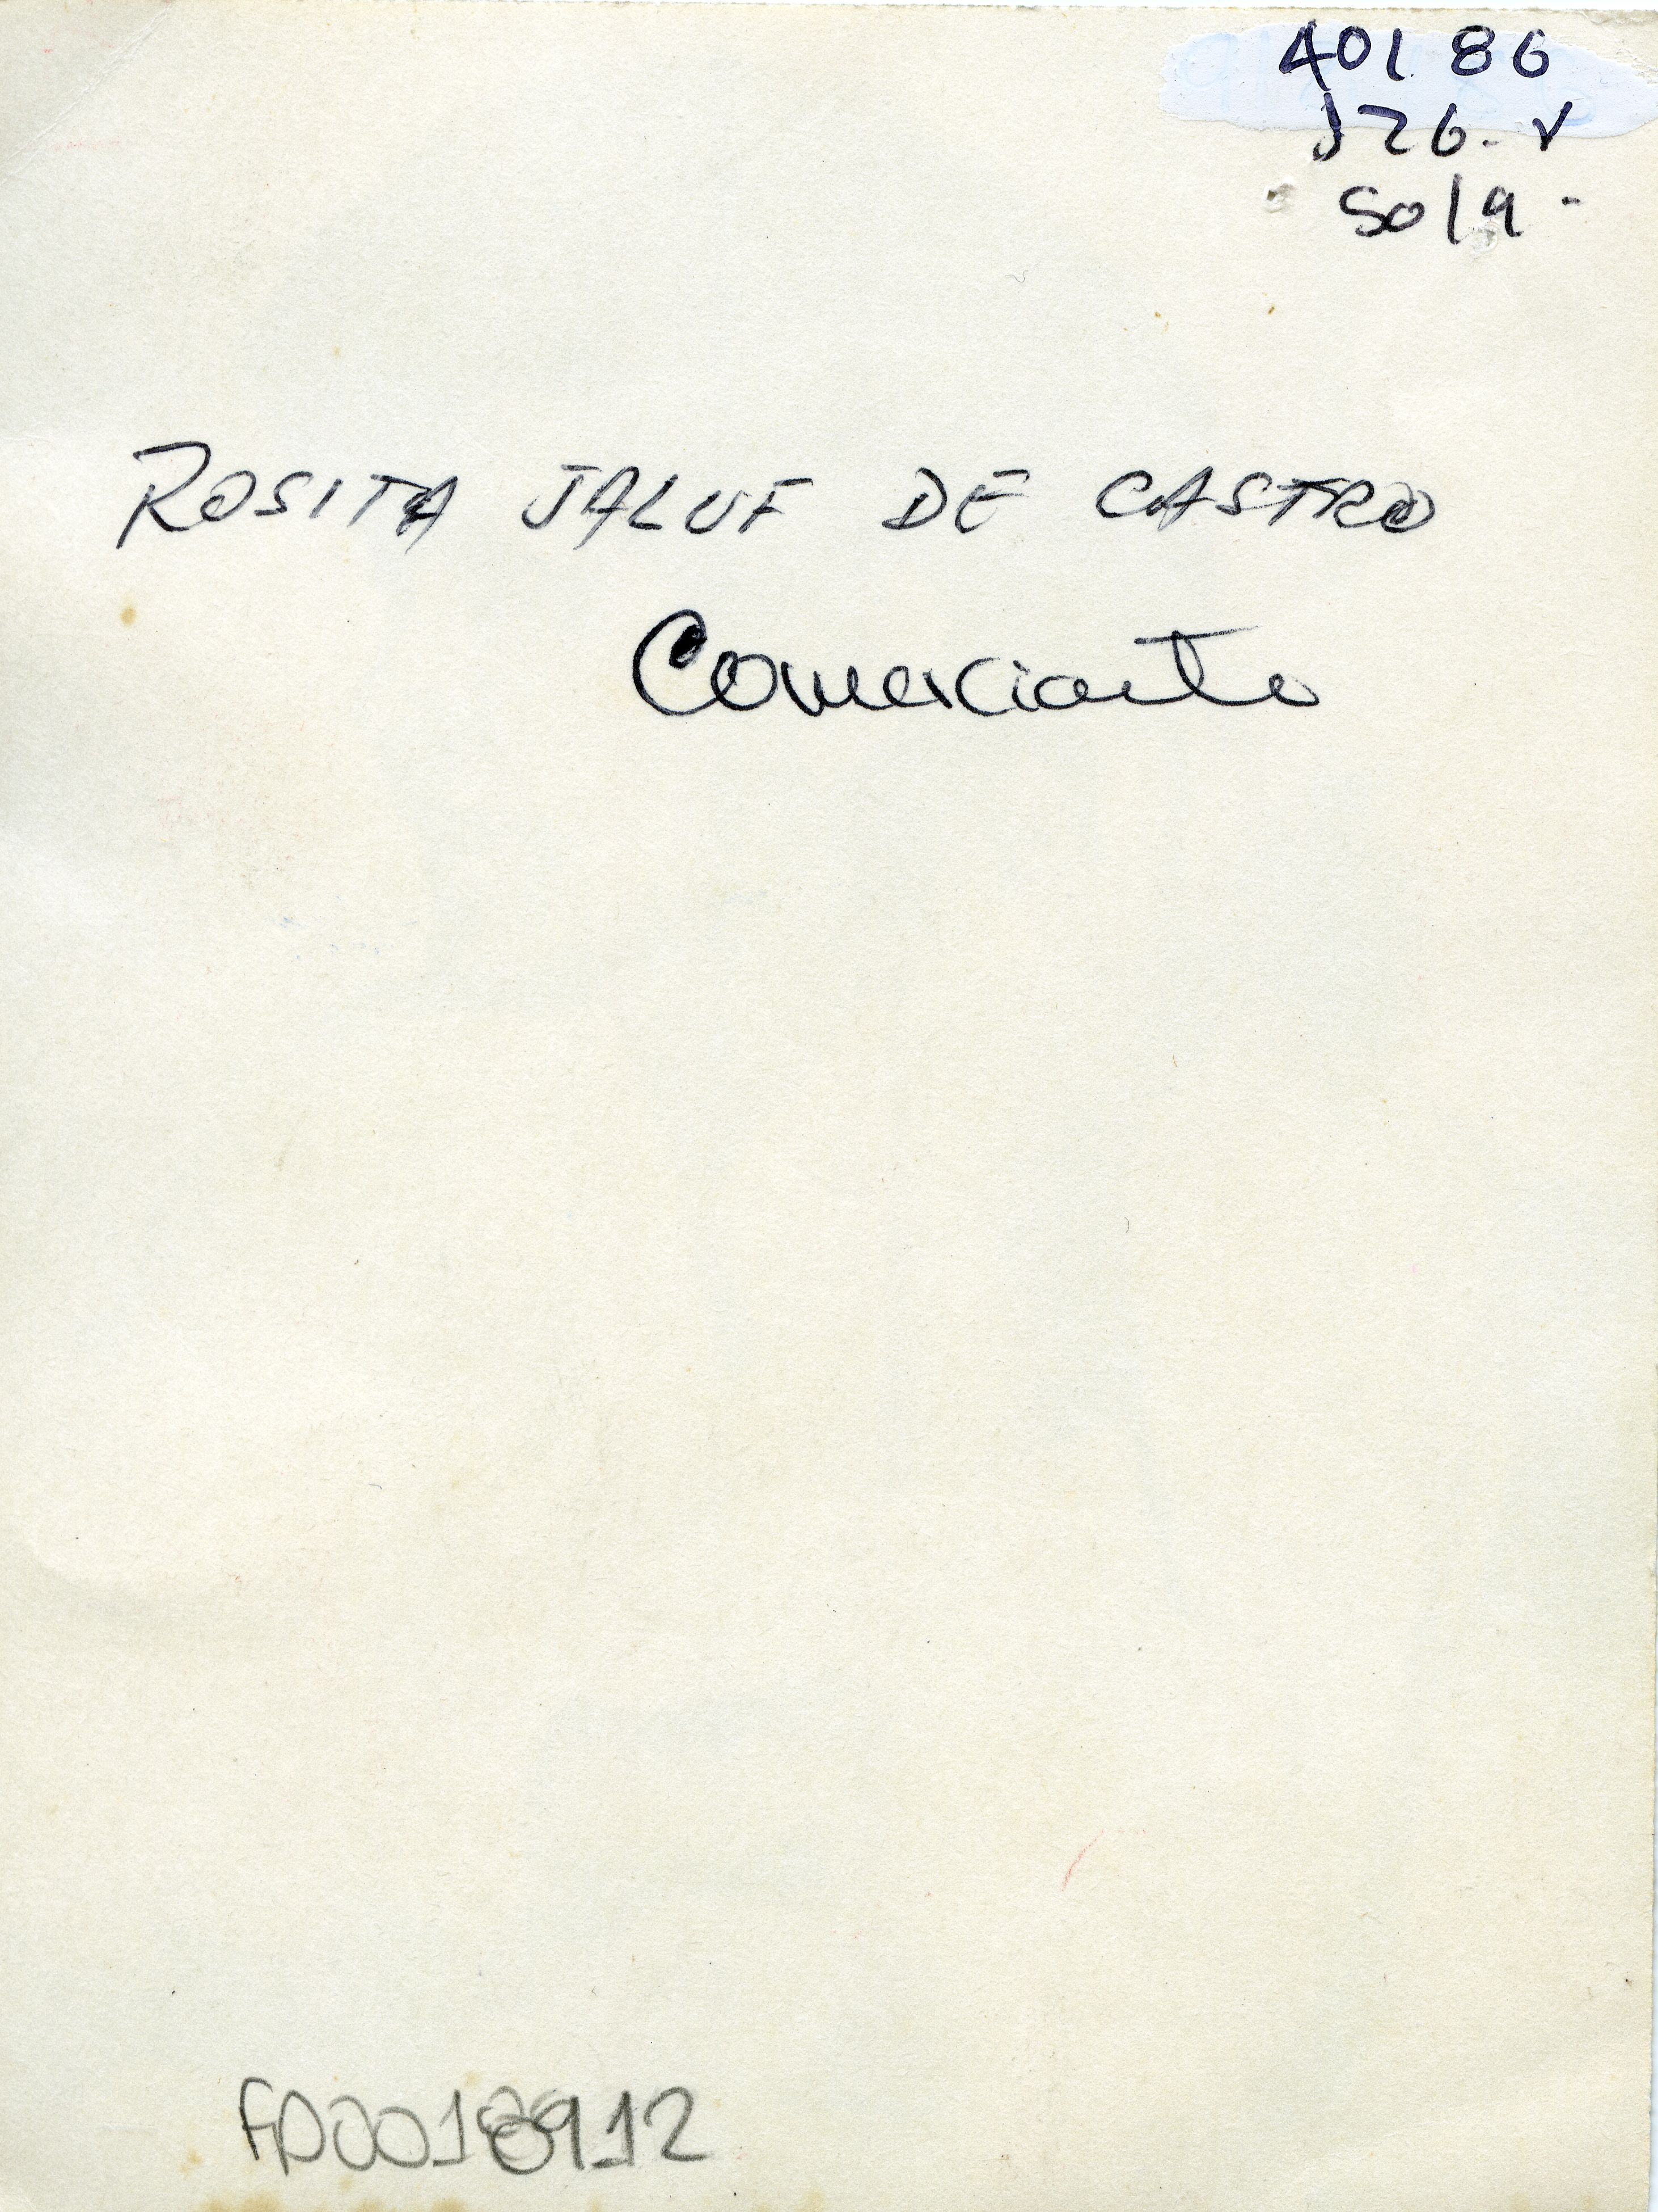 40186
J26. V
Sola -
ROSITA JALUF DE CASTRO
Comerciante
FD0018912